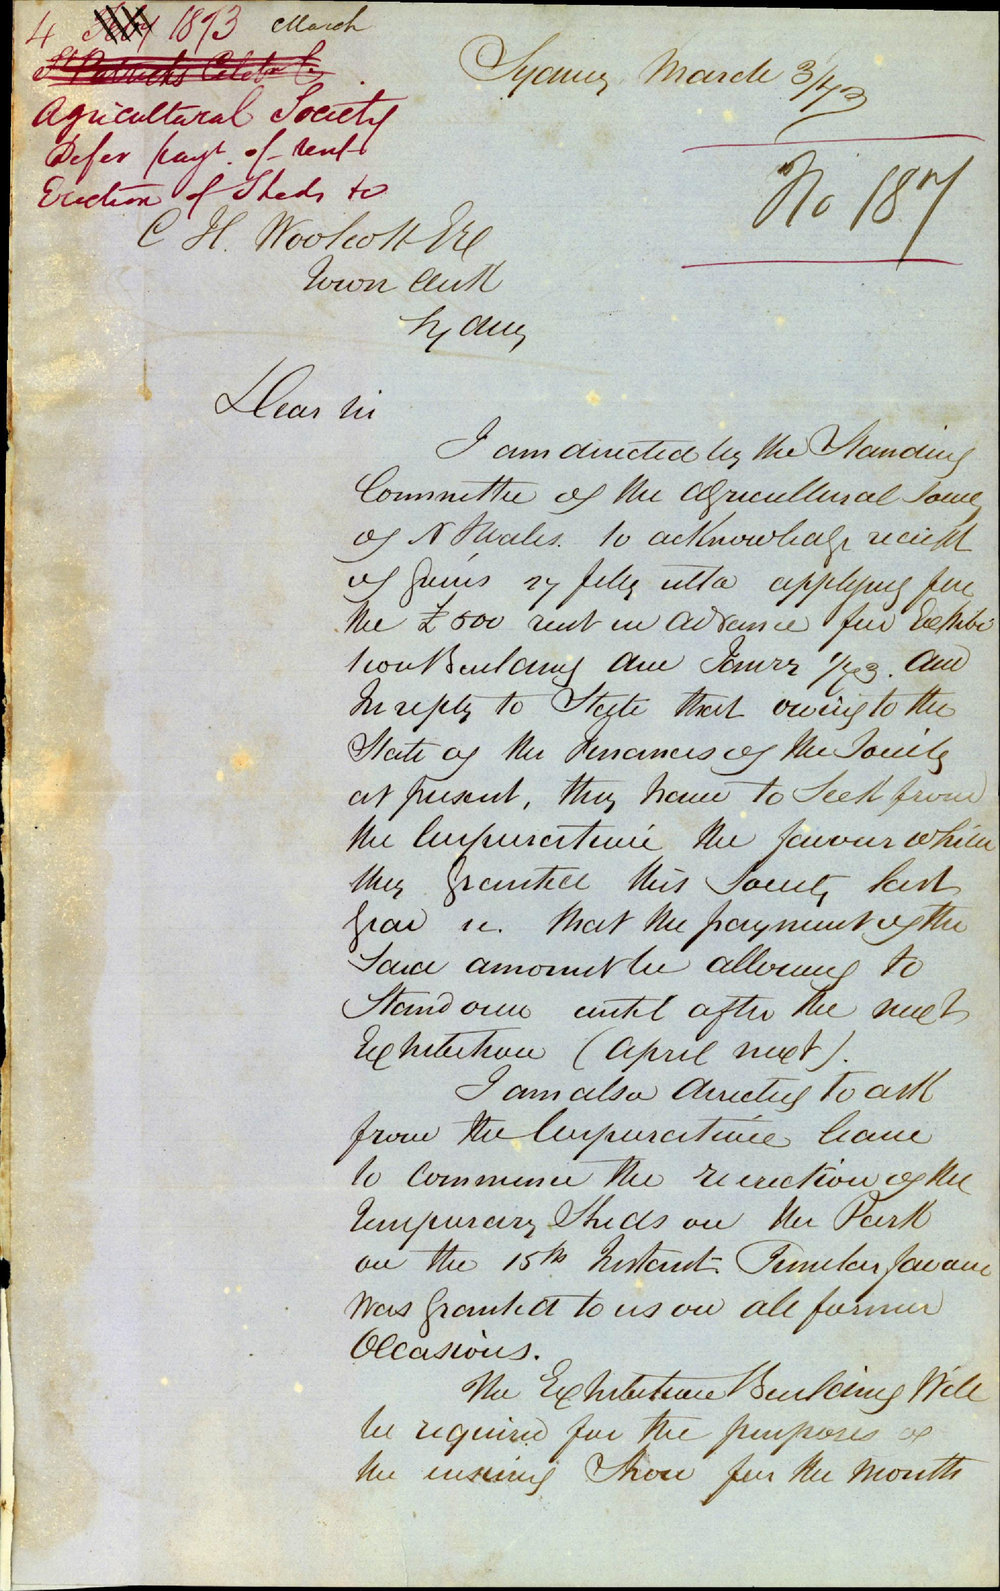 4 Feby 1873 March
St Patricks Celebn
Agricultural Society
Defer payt. of rent
Erection of Sheds &c
Sydney March 3/73
No 187
C H. Woolcott Esq
Town Clerk
Sydney
Dear Sir
I am directed by the Standing
Committee of the Agricultural Society
of N S Wales. to acknowledge reciept
of yours 27 Feby ulto applying for
the £500 rent in advance for Exhibi
tion Building due Janry 1/73. and
In reply to State that owing to the
State of the Finances of the Society
at present, they have to Seek from
the Corporation the favour which
they granted this Society last
year ie. that the payment of the
Said amount be allowed to
Stand over until after the next
Exhibition (April next).
I am also directed to ask
from the Corporation leave
to commence the re erection of the
temporary Sheds on the Park
on the 15th Instant. Similar favour
was granted to us on all former
Occasions.
The Exhibition Building Will
be required for the purposes of
the ensuing Show for the month